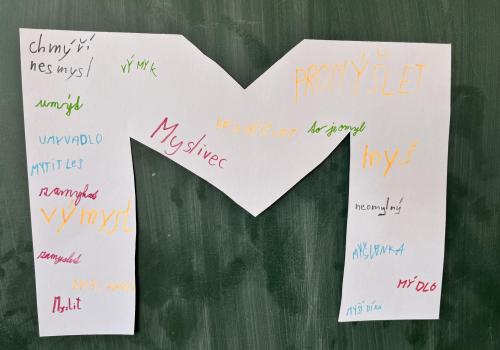 chmýří
nesmysl
VÝMYK
umýt
UMYVADLO
MÝTIT LES
zamykat
výmysl
Myslit
Myslivec
PROMÝŠLET
myš
neomylný
MYŠLENKA
MÝDLO
MYŠÍ DÍRA